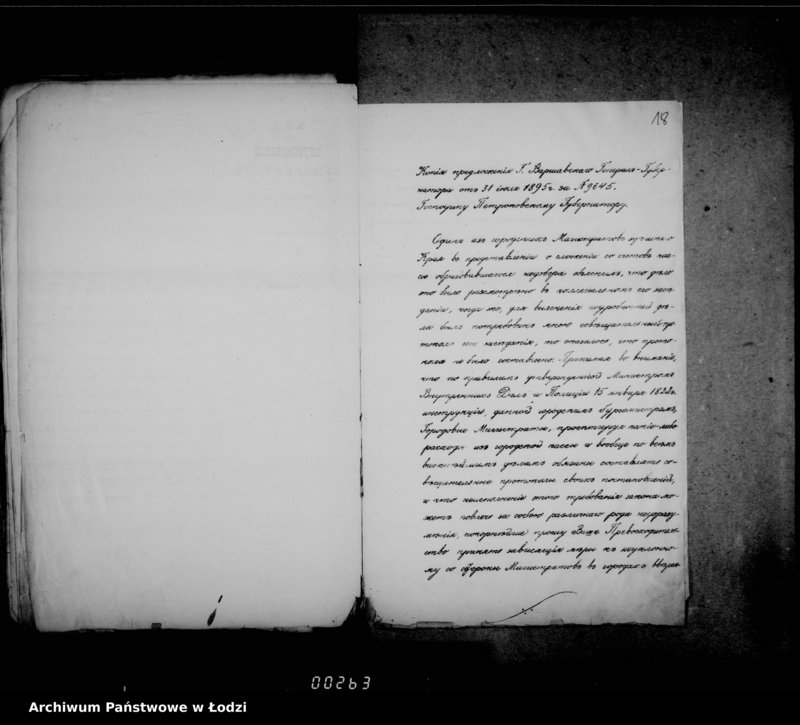 18
Копія предложенія Г. Варшавскаго Генералъ-Губер-
натора отъ 31 іюля 1895 г. за № 9645.
Господину Петроковскому Губернатору.
Одинъ изъ городскихъ Магистратовъ здѣшняго
Края въ представленіи о сложеніи со счетовъ кас-
сы образовавшагося недобора объяснилъ, что дѣло
это было разсмотрѣно въ коллегіальномъ его засѣ-
даніи, когда же, для выясненія подробностей дѣ-
ла былъ потребованъ мною совѣщательный про-
токолъ сего засѣданія, то оказалось, что прото-
кола не было составлено. Принимая во вниманіе,
что по правиламъ утвержденной Министромъ
Внутреннихъ Дѣлъ и Полиціи 15 января 1822 г.
инструкціи, данной городскимъ бургомистрамъ,
Городовые Магистраты, проектируя какіе-либо
расходы изъ городской кассы и вообще по всѣмъ
важнѣйшимъ дѣламъ обязаны составлять со-
вѣщательные протоколы своихъ постановленій,
и что неисполненіе этого требованія закона мо-
жетъ повлечь за собою различнаго рода недоразу-
мѣнія, покорнѣйше прошу Ваше Превосходитель-
ство принять зависящія мѣры къ неуклонно-
му со стороны Магистратовъ въ городахъ ввѣрен-
00263
Archiwum Państwowe w Łodzi